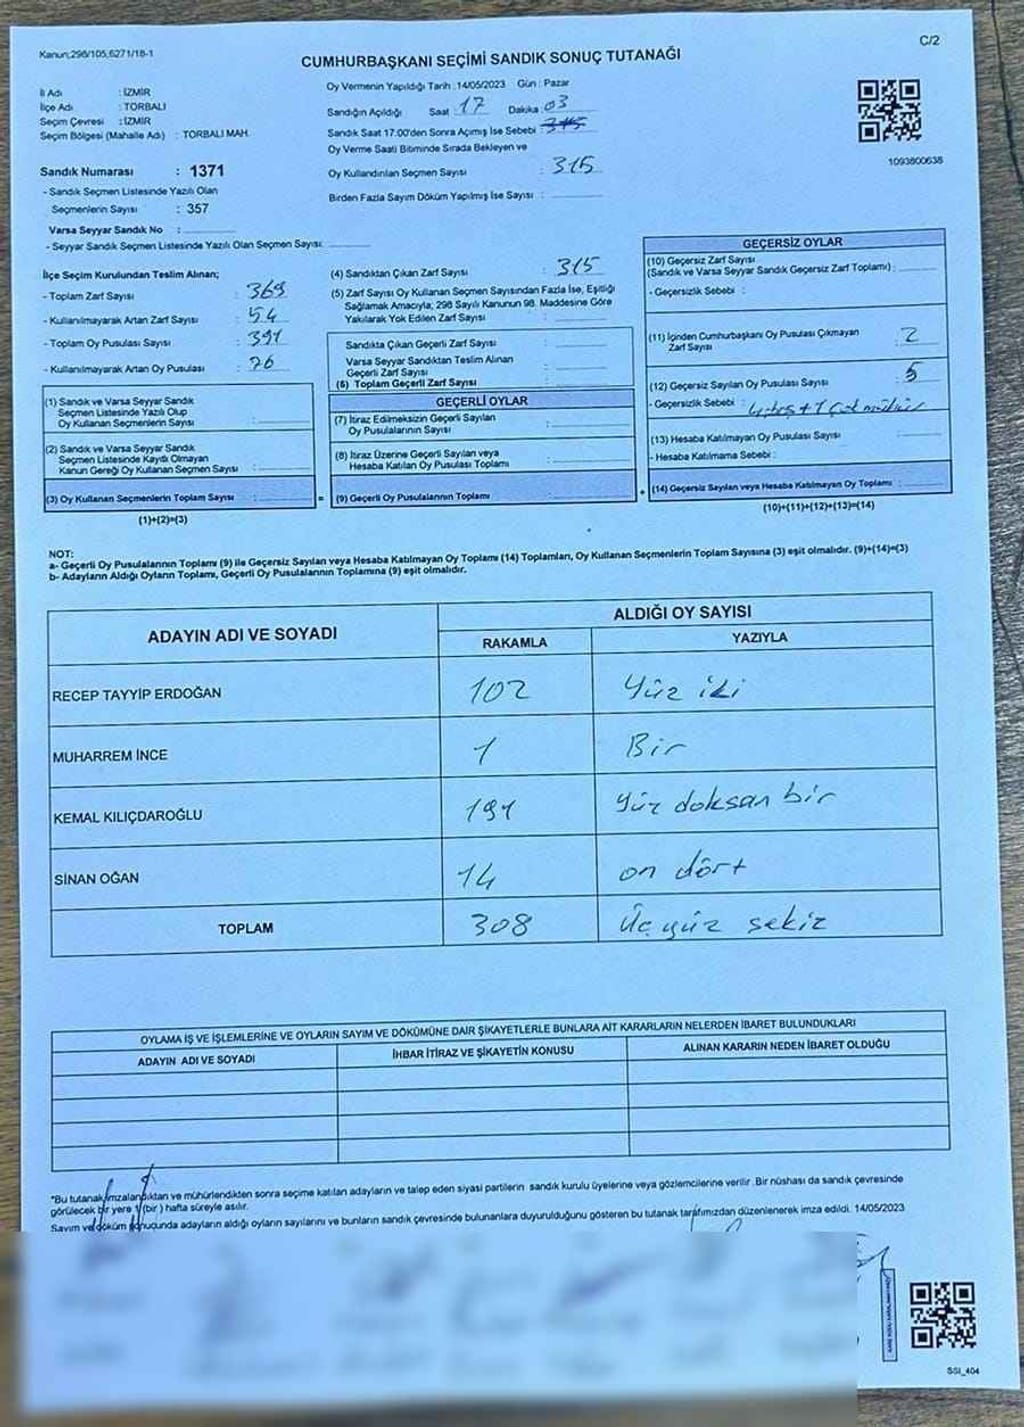 Kanun;298/105,6271/18-1
C/2
CUMHURBAŞKANI SEÇİMİ SANDIK SONUÇ TUTANAĞI
İl Adı : İZMİR
İlçe Adı : TORBALI
Seçim Çevresi : İZMİR
Seçim Bölgesi (Mahalle Adı) : TORBALI MAH.
Sandık Numarası : 1371
- Sandık Seçmen Listesinde Yazılı Olan
Seçmenlerin Sayısı : 357
Varsa Seyyar Sandık No :
- Seyyar Sandık Seçmen Listesinde Yazılı Olan Seçmen Sayısı:
Oy Vermenin Yapıldığı Tarih : 14/05/2023 Gün : Pazar
Sandığın Açıldığı Saat 17 Dakika : 03
Sandık Saat 17.00'den Sonra Açımış İse Sebebi : 315
Oy Verme Saati Bitiminde Sırada Bekleyen ve
Oy Kullandırılan Seçmen Sayısı : 315
Birden Fazla Sayım Döküm Yapılmış İse Sayısı :
1093800638
İlçe Seçim Kurulundan Teslim Alınan;
- Toplam Zarf Sayısı : 369
- Kullanılmayarak Artan Zarf Sayısı : 54
- Toplam Oy Pusulası Sayısı : 391
- Kullanılmayarak Artan Oy Pusulası : 76
(1) Sandık ve Varsa Seyyar Sandık
Seçmen Listesinde Yazılı Olup
Oy Kullanan Seçmenlerin Sayısı :
(2) Sandık ve Varsa Seyyar Sandık
Seçmen Listesinde Kayıtlı Olmayan
Kanun Gereği Oy Kullanan Seçmen Sayısı :
(3) Oy Kullanan Seçmenlerin Toplam Sayısı :
(1)+(2)=(3)
(4) Sandıktan Çıkan Zarf Sayısı : 315
(5) Zarf Sayısı Oy Kullanan Seçmen Sayısından Fazla İse, Eşitliği
Sağlamak Amacıyla; 298 Sayılı Kanunun 98. Maddesine Göre
Yakılarak Yok Edilen Zarf Sayısı :
Sandıkta Çıkan Geçerli Zarf Sayısı :
Varsa Seyyar Sandıktan Teslim Alınan
Geçerli Zarf Sayısı :
(6) Toplam Geçerli Zarf Sayısı :
GEÇERLİ OYLAR
(7) İtiraz Edilmeksizin Geçerli Sayılan
Oy Pusulalarının Sayısı :
(8) İtiraz Üzerine Geçerli Sayılan veya
Hesaba Katılan Oy Pusulası Toplamı :
= (9) Geçerli Oy Pusulalarının Toplamı :
GEÇERSİZ OYLAR
(10) Geçersiz Zarf Sayısı
(Sandık ve Varsa Seyyar Sandık Geçersiz Zarf Toplamı) :
- Geçersizlik Sebebi :
(11) İçinden Cumhurbaşkanı Oy Pusulası Çıkmayan
Zarf Sayısı : 2
(12) Geçersiz Sayılan Oy Pusulası Sayısı : 5
- Geçersizlik Sebebi : 4 boş + 1 çift mühür
(13) Hesaba Katılmayan Oy Pusulası Sayısı :
- Hesaba Katılmama Sebebi :
+ (14) Geçersiz Sayılan veya Hesaba Katılmayan Oy Toplamı :
(10)+(11)+(12)+(13)=(14)
NOT:
a- Geçerli Oy Pusulalarının Toplamı (9) ile Geçersiz Sayılan veya Hesaba Katılmayan Oy Toplamı (14) Toplamları, Oy Kullanan Seçmenlerin Toplam Sayısına (3) eşit olmalıdır. (9)+(14)=(3)
b- Adayların Aldığı Oyların Toplamı, Geçerli Oy Pusulalarının Toplamına (9) eşit olmalıdır.
ADAYIN ADI VE SOYADI ALDIĞI OY SAYISI
RAKAMLA YAZIYLA
RECEP TAYYİP ERDOĞAN 102 Yüz iki
MUHARREM İNCE 1 Bir
KEMAL KILIÇDAROĞLU 191 Yüz doksan bir
SİNAN OĞAN 14 on dört
TOPLAM 308 Üç yüz sekiz
OYLAMA İŞ VE İŞLEMLERİNE VE OYLARIN SAYIM VE DÖKÜMÜNE DAİR ŞİKAYETLERLE BUNLARA AİT KARARLARIN NELERDEN İBARET BULUNDUKLARI
ADAYIN ADI VE SOYADI İHBAR İTİRAZ VE ŞİKAYETİN KONUSU ALINAN KARARIN NEDEN İBARET OLDUĞU
*Bu tutanak imzalandıktan ve mühürlendikten sonra seçime katılan adayların ve talep eden siyasi partilerin sandık kurulu üyelerine veya gözlemcilerine verilir. Bir nüshası da sandık çevresinde
görülecek bir yere 1 (bir) hafta süreyle asılır.
Sayım ve döküm konusunda adayların aldığı oyların sayılarını ve bunların sandık çevresinde bulunanlara duyurulduğunu gösteren bu tutanak tarafımızdan düzenlenerek imza edildi. 14/05/2023
SSI_404